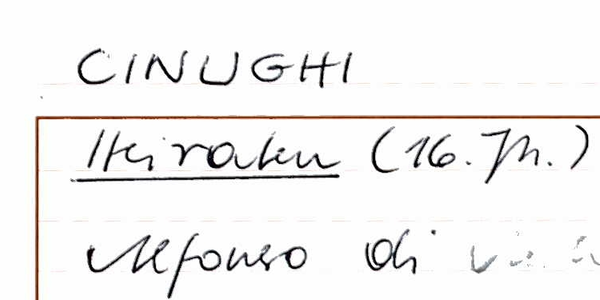 CINUGHI
Heiraten (16. Jh.)
Alfonso di